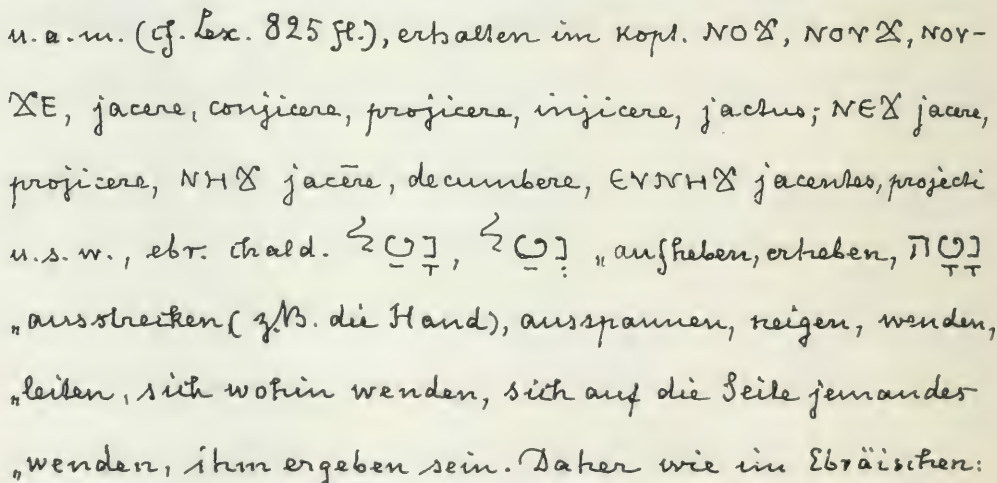 u. a. m. (cf. Lex. 825 fl.), erhalten im Kopt. ⲚⲞϪ, ⲚⲞⲨϪ, ⲚⲞⲨ-
ϪⲈ, jacere, conjicere, projicere, injicere, jactus; ⲚⲈϪ jacere,
projicere, ⲚⲎϪ jacēre, decumbere, ⲈⲨⲚⲎϪ jacentes, projecti
u. s. w., ebr. chald. נָטַל, נְטַל „aufheben, erheben, נָטָה
„ausstrecken (z. B. die Hand), ausspannen, neigen, wenden,
„leiten, sich wohin wenden, sich auf die Seite jemandes
„wenden, ihm ergeben sein. Daher wie im Ebräischen: